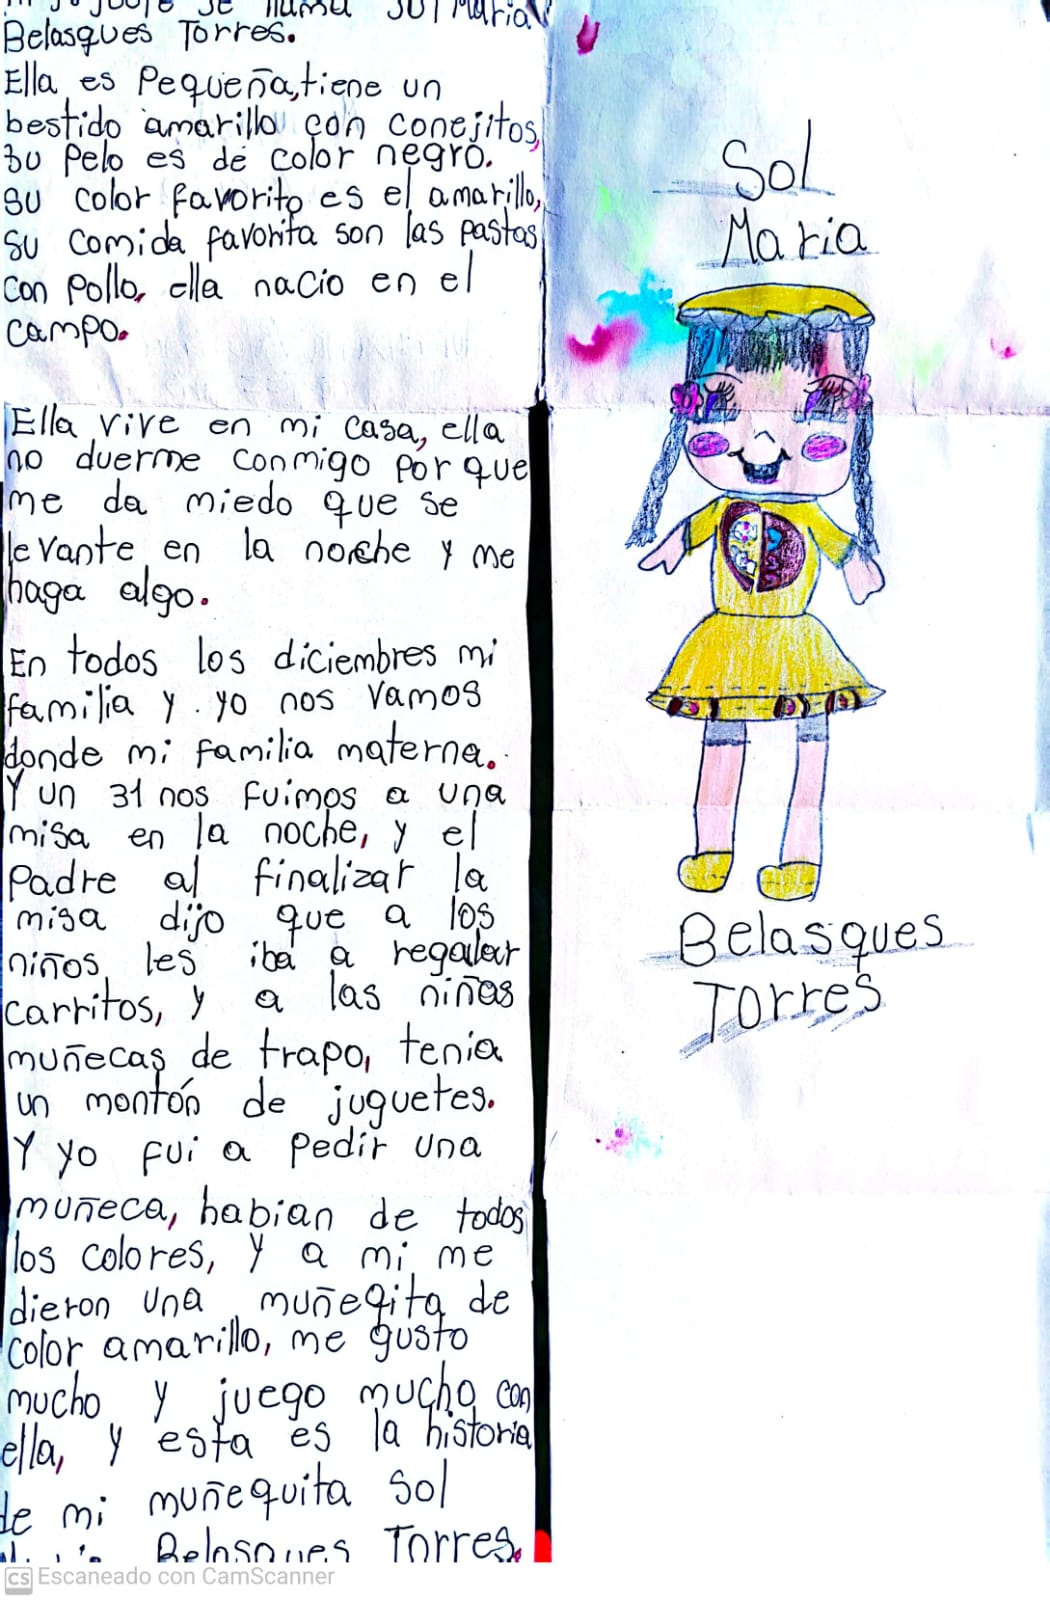 mi juguete se llama Sol Maria
Belasques Torres.
Ella es Pequeña, tiene un
bestido amarillo con conejitos,
su pelo es de color negro.
su color favorito es el amarillo,
su comida favorita son las pastas
con pollo, ella nacio en el
campo.
Ella vive en mi casa, ella
no duerme conmigo por que
me da miedo que se
levante en la noche y me
haga algo.
En todos los diciembres mi
familia y yo nos vamos
donde mi familia materna.
Y un 31 nos fuimos a una
misa en la noche, y el
Padre al finalizar la
misa dijo que a los
niños les iba a regalar
carritos, y a las niñas
muñecas de trapo, tenia
un montón de juguetes.
Y yo fui a pedir una
muñeca, habian de todos
los colores, y a mi me
dieron una muñeqita de
color amarillo, me gusto
mucho y juego mucho con
ella, y esta es la historia
de mi muñequita Sol
Belasques Torres.
Sol
Maria
Belasques
Torres
CS Escaneado con CamScanner